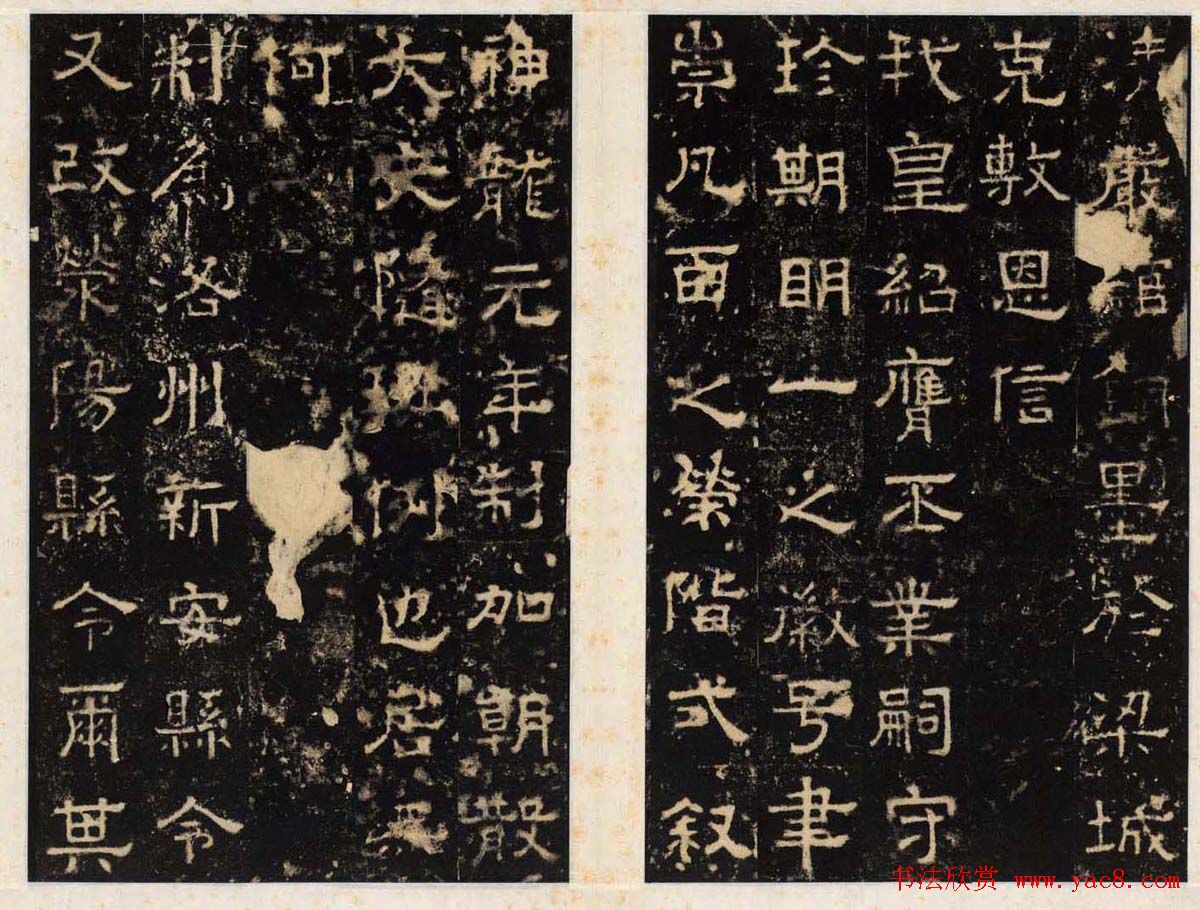 嚴綰銅墨於梁城
克敷恩信
我皇紹膺丕業嗣守
珍期明一之徽号聿
崇凡百之榮階式叙
神龍元年制加朝散
大夫隨班例也居無
何
制爲洛州新安縣令
又改滎陽縣令爾其
书法欣赏 www.yac8.com